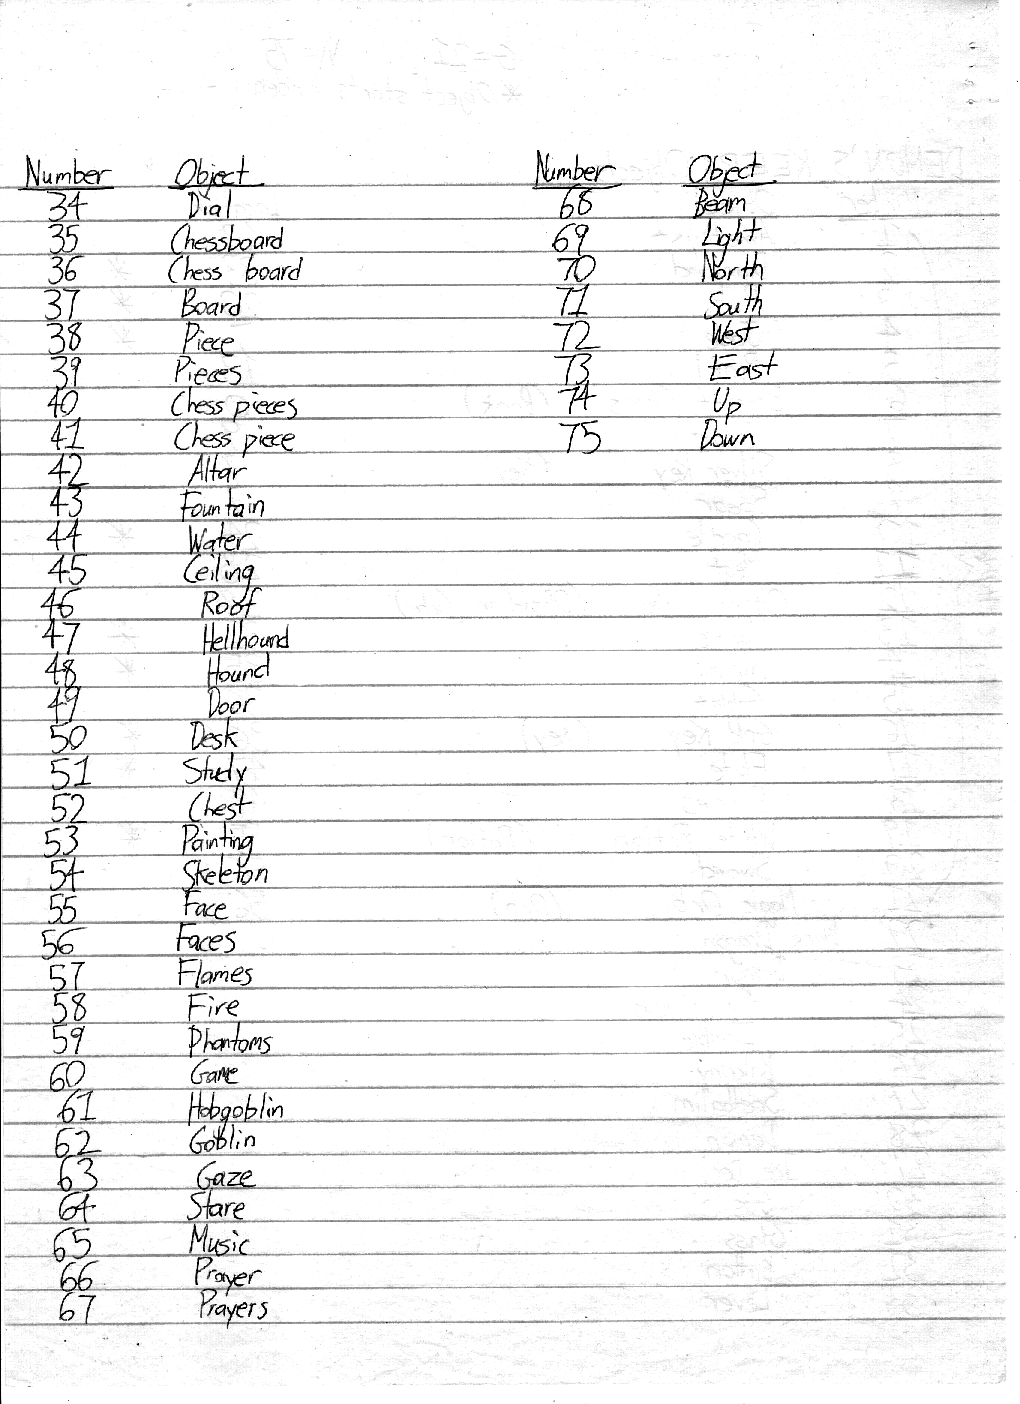 Number Object
34 Dial
35 Chessboard
36 Chess board
37 Board
38 Piece
39 Pieces
40 Chess pieces
41 Chess piece
42 Altar
43 Fountain
44 Water
45 Ceiling
46 Roof
47 Hellhound
48 Hound
49 Door
50 Desk
51 Study
52 Chest
53 Painting
54 Skeleton
55 Face
56 Faces
57 Flames
58 Fire
59 Phantoms
60 Game
61 Hobgoblin
62 Goblin
63 Gaze
64 Stare
65 Music
66 Prayer
67 Prayers
Number Object
68 Beam
69 Light
70 North
71 South
72 West
73 East
74 Up
75 Down